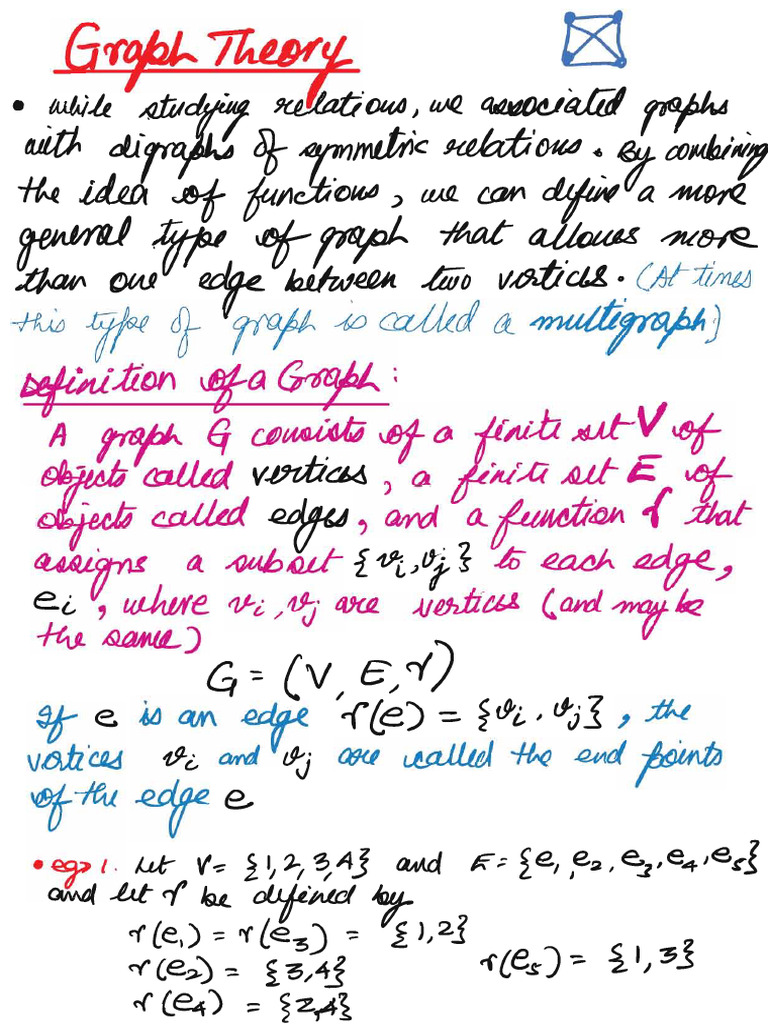 Graph Theory
• While studying relations, we associated graphs
with digraphs of symmetric relations. By combining
the idea of functions, we can define a more
general type of graph that allows more
than one edge between two vertices. (At times
this type of graph is called a multigraph.)
Definition of a Graph:
A graph G consists of a finite set V of
objects called vertices, a finite set E of
objects called edges, and a function γ that
assigns a subset {vi, vj} to each edge,
ei, where vi, vj are vertices (and may be
the same)
G = (V, E, γ)
If e is an edge γ(e) = {vi, vj}, the
vertices vi and vj are called the end points
of the edge e
• eg 1. Let V = {1,2,3,4} and E = {e1, e2, e3, e4, e5}
and let γ be defined by
γ(e1) = γ(e3) = {1,2}
γ(e2) = {3,4} γ(e5) = {1,3}
γ(e4) = {2,4}